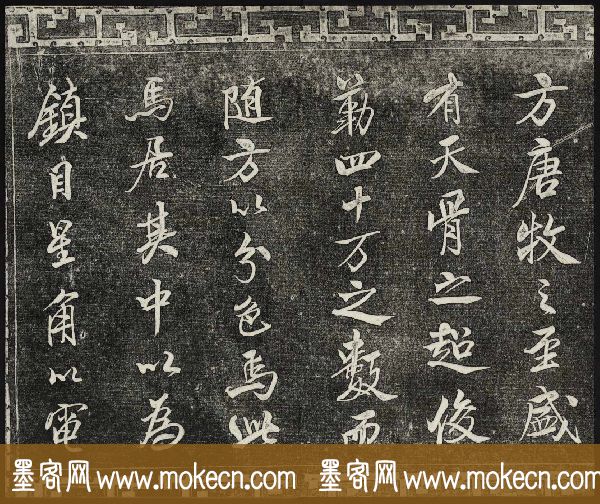 方唐牧之至盛
有天骨之超俊
勒四十万之數而
随方以分色焉此
馬居其中以為
鎮目星角以電
墨客网 www.mokecn.com 墨客网 www.mokecn.com